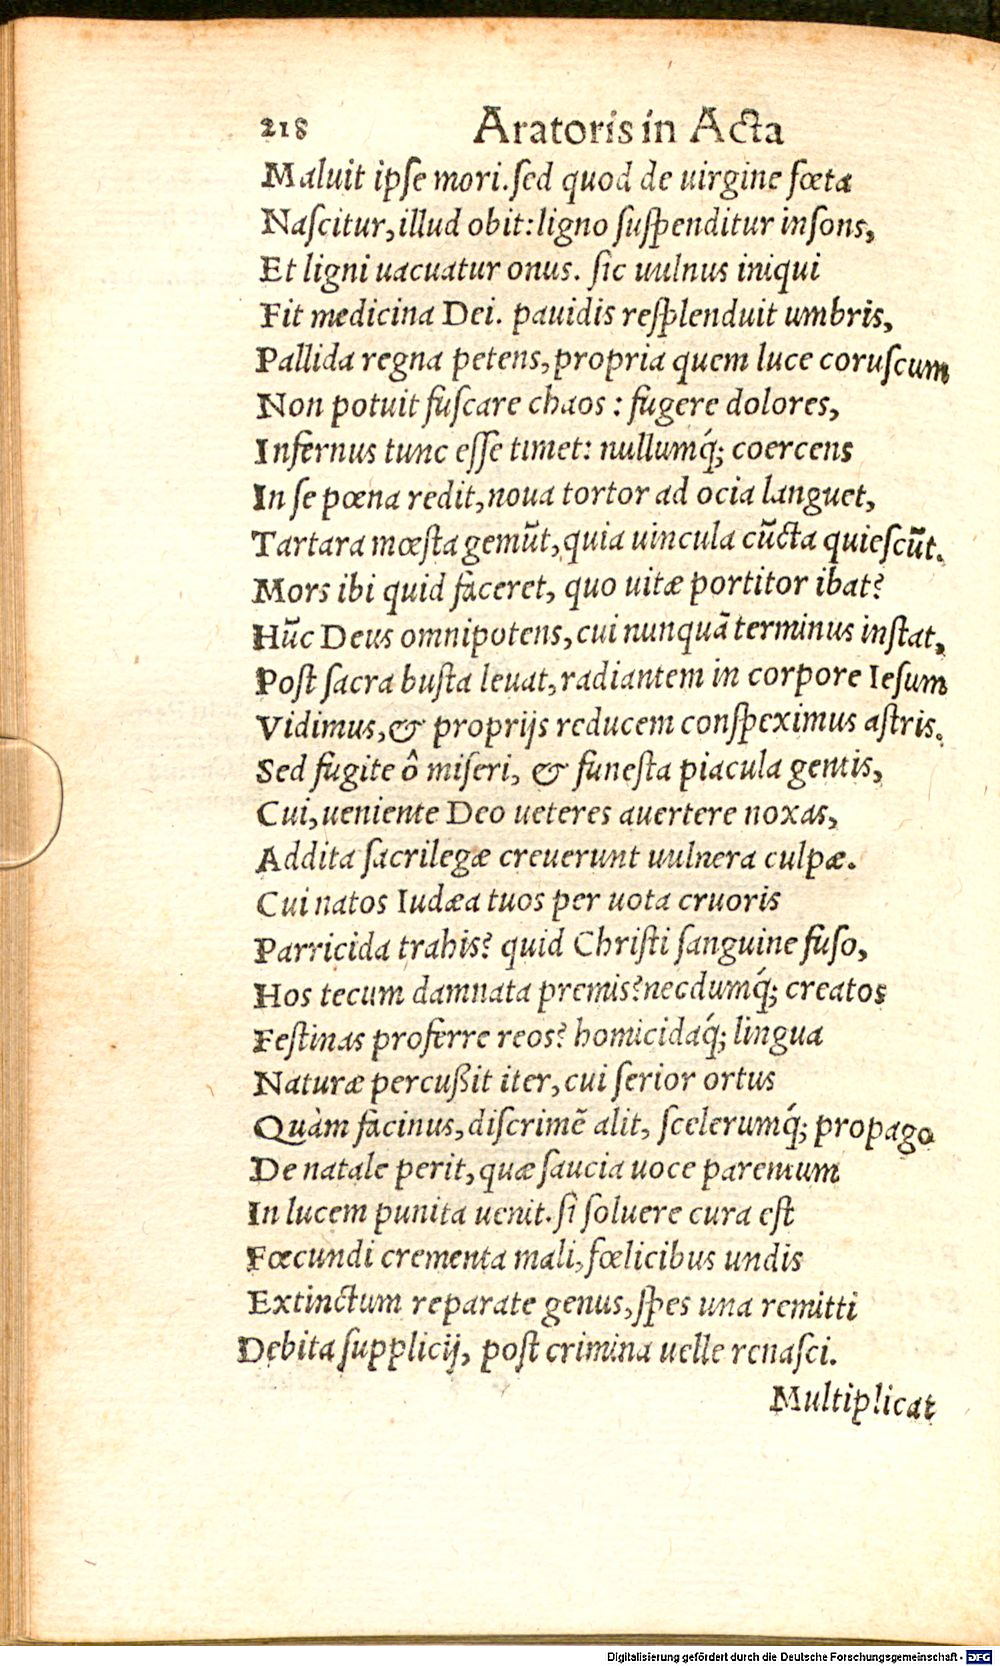 218 Aratoris in Acta
Maluit ipſe mori. ſed quod de uirgine fœta
Naſcitur, illud obit: ligno ſuſpenditur inſons,
Et ligni uacuatur onus. ſic uulnus iniqui
Fit medicina Dei. pauidis reſplenduit umbris,
Pallida regna petens, propria quem luce coruſcum
Non potuit fuſcare chaos : fugere dolores,
Infernus tunc eſſe timet: nullumq́; coercens
In ſe pœna redit, noua tortor ad ocia languet,
Tartara mœſta gemūt, quia uincula cūcta quieſcūt.
Mors ibi quid faceret, quo uitæ portitor ibat?
Hūc Deus omnipotens, cui nunquā terminus inſtat,
Poſt ſacra buſta leuat, radiantem in corpore Ieſum
Vidimus, & proprijs reducem conſpeximus aſtris.
Sed fugite ô miſeri, & funeſta piacula gentis,
Cui, ueniente Deo ueteres auertere noxas,
Addita ſacrilegæ creuerunt uulnera culpæ.
Cui natos Iudæa tuos per uota cruoris
Parricida trahis? quid Chriſti ſanguine fuſo,
Hos tecum damnata premis? necdumq́; creatos
Feſtinas proferre reos? homicidaq́; lingua
Naturæ percußit iter, cui ſerior ortus
Quàm facinus, diſcrimē alit, ſcelerumq́; propago
De natale perit, quæ ſaucia uoce parentum
In lucem punita uenit. ſi ſoluere cura eſt
Fœcundi crementa mali, fœlicibus undis
Extinctum reparate genus, ſpes una remitti
Debita ſupplicij, poſt crimina uelle renaſci.
Multiplicat
Digitalisierung gefördert durch die Deutsche Forschungsgemeinschaft - DFG